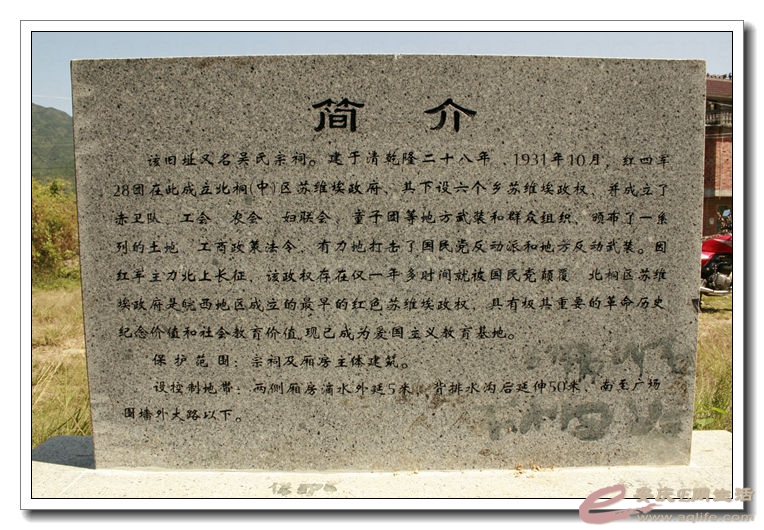 简介
该旧址又名吴氏宗祠。建于清乾隆二十八年、1931年10月，红四军
28团在此成立北祠(中)区苏维埃政府、其下设六个乡苏维埃政权、并成立了
赤卫队、工会、农会、妇联会、童子团等地方武装和群众组织，颁布了一系
列的土地、工商政策法令，有力地打击了国民党反动派和地方反动武装。因
红军主力北上长征，该政权存在仅一年多时间就被国民党颠覆 北祠区苏维
埃政府是皖西地区成立的最早的红色苏维埃政权，具有极其重要的革命历史
纪念价值和社会教育价值,现已成为爱国主义教育基地。
保护范围：宗祠及厢房主体建筑。
设控制地带：两侧厢房滴水外延5米、背排水沟后延伸50米、南至广场
围墙外大路以下。
安庆E网生活
www.aqlife.com